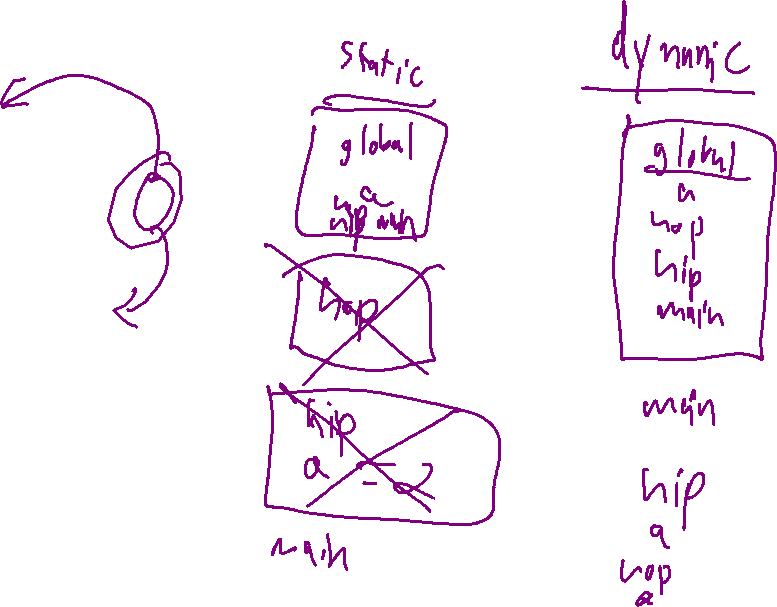 static
global
a
hop main
hop
hip
a = 2
main
dynamic
global
a
hop
hip
main
main
hip
a
hop
a